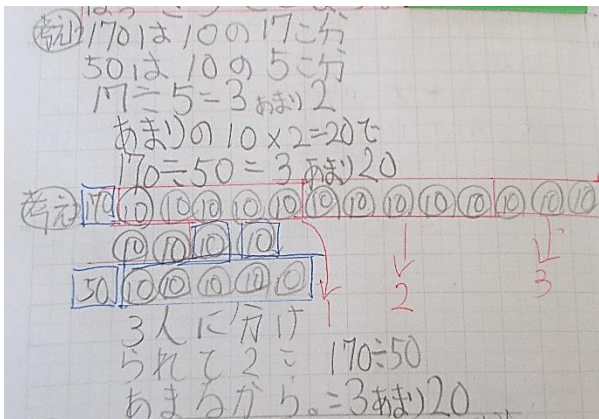 考え 170は10の17こ分
50は10の5こ分
17÷5=3あまり2
あまりの10×2=20で
170÷50=3あまり20
考え 170 ⑩⑩⑩⑩⑩⑩⑩⑩⑩⑩⑩⑩⑩⑩
⑩⑩⑩⑩
50 ⑩⑩⑩⑩⑩
1 2 3
3人に分け
られて2こ 170÷50
あまるから。=3あまり20